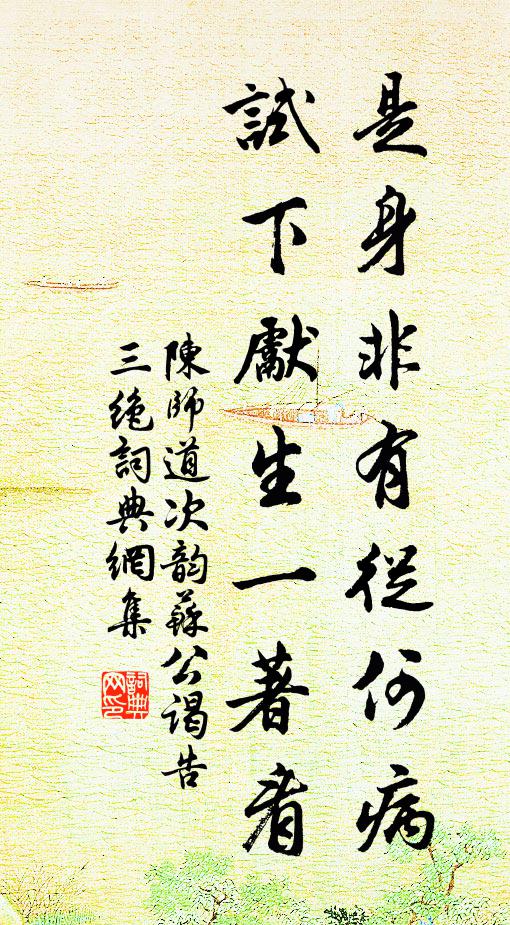 是身非有從何病
試下獻生一著看
陳師道次韵蘇公謁告
三絶詞典網集
詞典网印